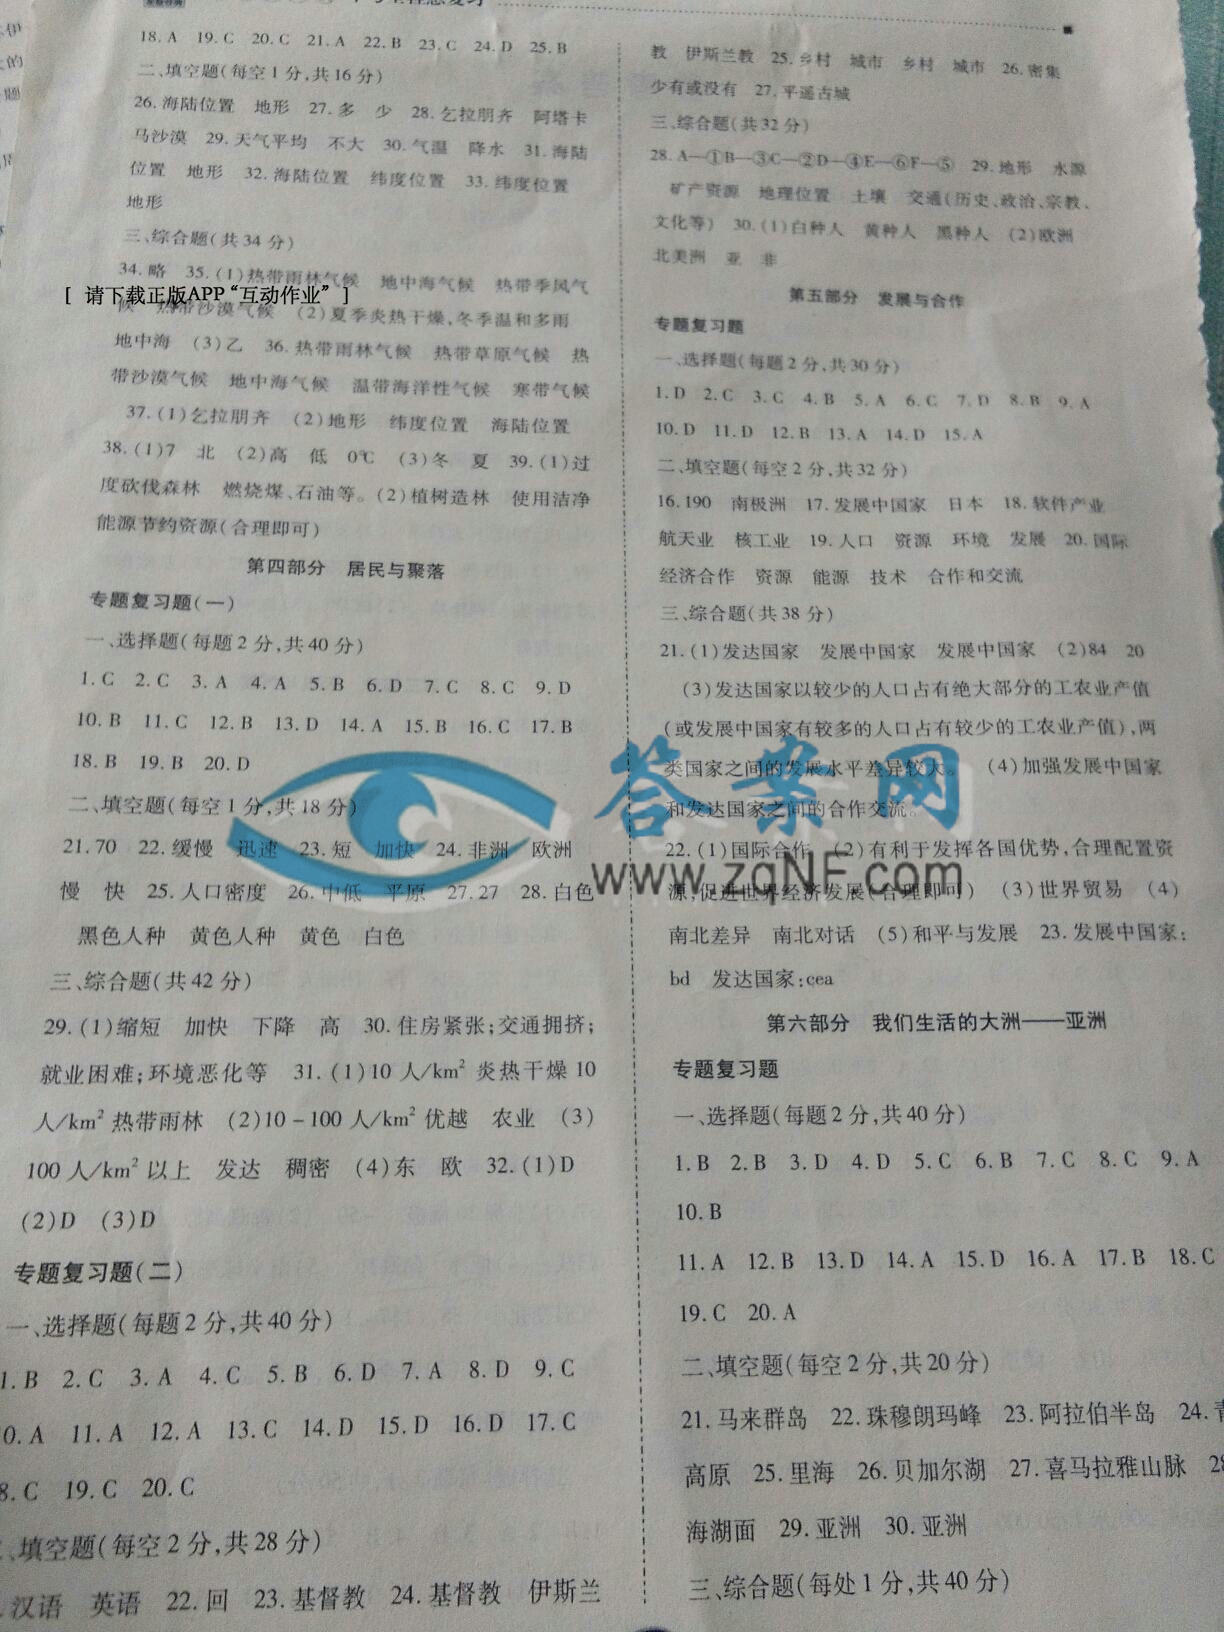 18.A 19.C 20.C 21.A 22.B 23.C 24.D 25.B
二、填空题(每空1分,共16分)
26.海陆位置 地形 27.多 少 28.乞拉朋齐 阿塔卡
马沙漠 29.天气平均 不大 30.气温 降水 31.海陆
位置 地形 32.海陆位置 纬度位置 33.纬度位置
地形
三、综合题(共34分)
34.略 35.(1)热带雨林气候 地中海气候 热带季风气
[ 请下载正版APP“互动作业” ]
候 热带沙漠气候 (2)夏季炎热干燥,冬季温和多雨
地中海 (3)乙 36.热带雨林气候 热带草原气候 热
带沙漠气候 地中海气候 温带海洋性气候 寒带气候
37.(1)乞拉朋齐 (2)地形 纬度位置 海陆位置
38.(1)7 北 (2)高 低 0℃ (3)冬 夏 39.(1)过
度砍伐森林 燃烧煤、石油等。(2)植树造林 使用洁净
能源节约资源(合理即可)
第四部分 居民与聚落
专题复习题(一)
一、选择题(每题2分,共40分)
1.C 2.C 3.A 4.A 5.B 6.D 7.C 8.C 9.D
10.B 11.C 12.B 13.D 14.A 15.B 16.C 17.B
18.B 19.B 20.D
二、填空题(每空1分,共18分)
21.70 22.缓慢 迅速 23.短 加快 24.非洲 欧洲
慢 快 25.人口密度 26.中低 平原 27.27 28.白色
黑色人种 黄色人种 黄色 白色
三、综合题(共42分)
29.(1)缩短 加快 下降 高 30.住房紧张;交通拥挤;
就业困难;环境恶化等 31.(1)10人/km² 炎热干燥10
人/km² 热带雨林 (2)10-100人/km² 优越 农业 (3)
100人/km² 以上 发达 稠密 (4)东 欧 32.(1)D
(2)D (3)D
专题复习题(二)
一、选择题(每题2分,共40分)
1.B 2.C 3.A 4.C 5.B 6.D 7.A 8.D 9.C
0.A 11.A 12.A 13.C 14.D 15.D 16.D 17.C
8.C 19.C 20.C
、填空题(每空2分,共28分)
汉语 英语 22.回 23.基督教 24.基督教 伊斯兰
教 伊斯兰教 25.乡村 城市 乡村 城市 26.密集
少有或没有 27.平遥古城
三、综合题(共32分)
28.A—①B—③C—②D—④E—⑥F—⑤ 29.地形 水源
矿产资源 地理位置 土壤 交通(历史、政治、宗教、
文化等) 30.(1)白种人 黄种人 黑种人 (2)欧洲
北美洲 亚 非
第五部分 发展与合作
专题复习题
一、选择题(每题2分,共30分)
1.D 2.C 3.C 4.B 5.A 6.C 7.D 8.B 9.A
10.D 11.D 12.B 13.A 14.D 15.A
二、填空题(每空2分,共32分)
16.190 南极洲 17.发展中国家 日本 18.软件产业
航天业 核工业 19.人口 资源 环境 发展 20.国际
经济合作 资源 能源 技术 合作和交流
三、综合题(共38分)
21.(1)发达国家 发展中国家 发展中国家 (2)84 20
(3)发达国家以较少的人口占有绝大部分的工农业产值
(或发展中国家有较多的人口占有较少的工农业产值),两
类国家之间的发展水平差异较大。 (4)加强发展中国家
和发达国家之间的合作交流。
答案网
22.(1)国际合作 (2)有利于发挥各国优势,合理配置资
www.zqNF.com
源,促进世界经济发展(合理即可) (3)世界贸易 (4)
南北差异 南北对话 (5)和平与发展 23.发展中国家:
bd 发达国家:cea
第六部分 我们生活的大洲——亚洲
专题复习题
一、选择题(每题2分,共40分)
1.B 2.B 3.D 4.D 5.C 6.B 7.C 8.C 9.A
10.B
11.A 12.B 13.D 14.A 15.D 16.A 17.B 18.C
19.C 20.A
二、填空题(每空2分,共20分)
21.马来群岛 22.珠穆朗玛峰 23.阿拉伯半岛 24.青
高原 25.里海 26.贝加尔湖 27.喜马拉雅山脉 28
海湖面 29.亚洲 30.亚洲
三、综合题(每处1分,共40分)